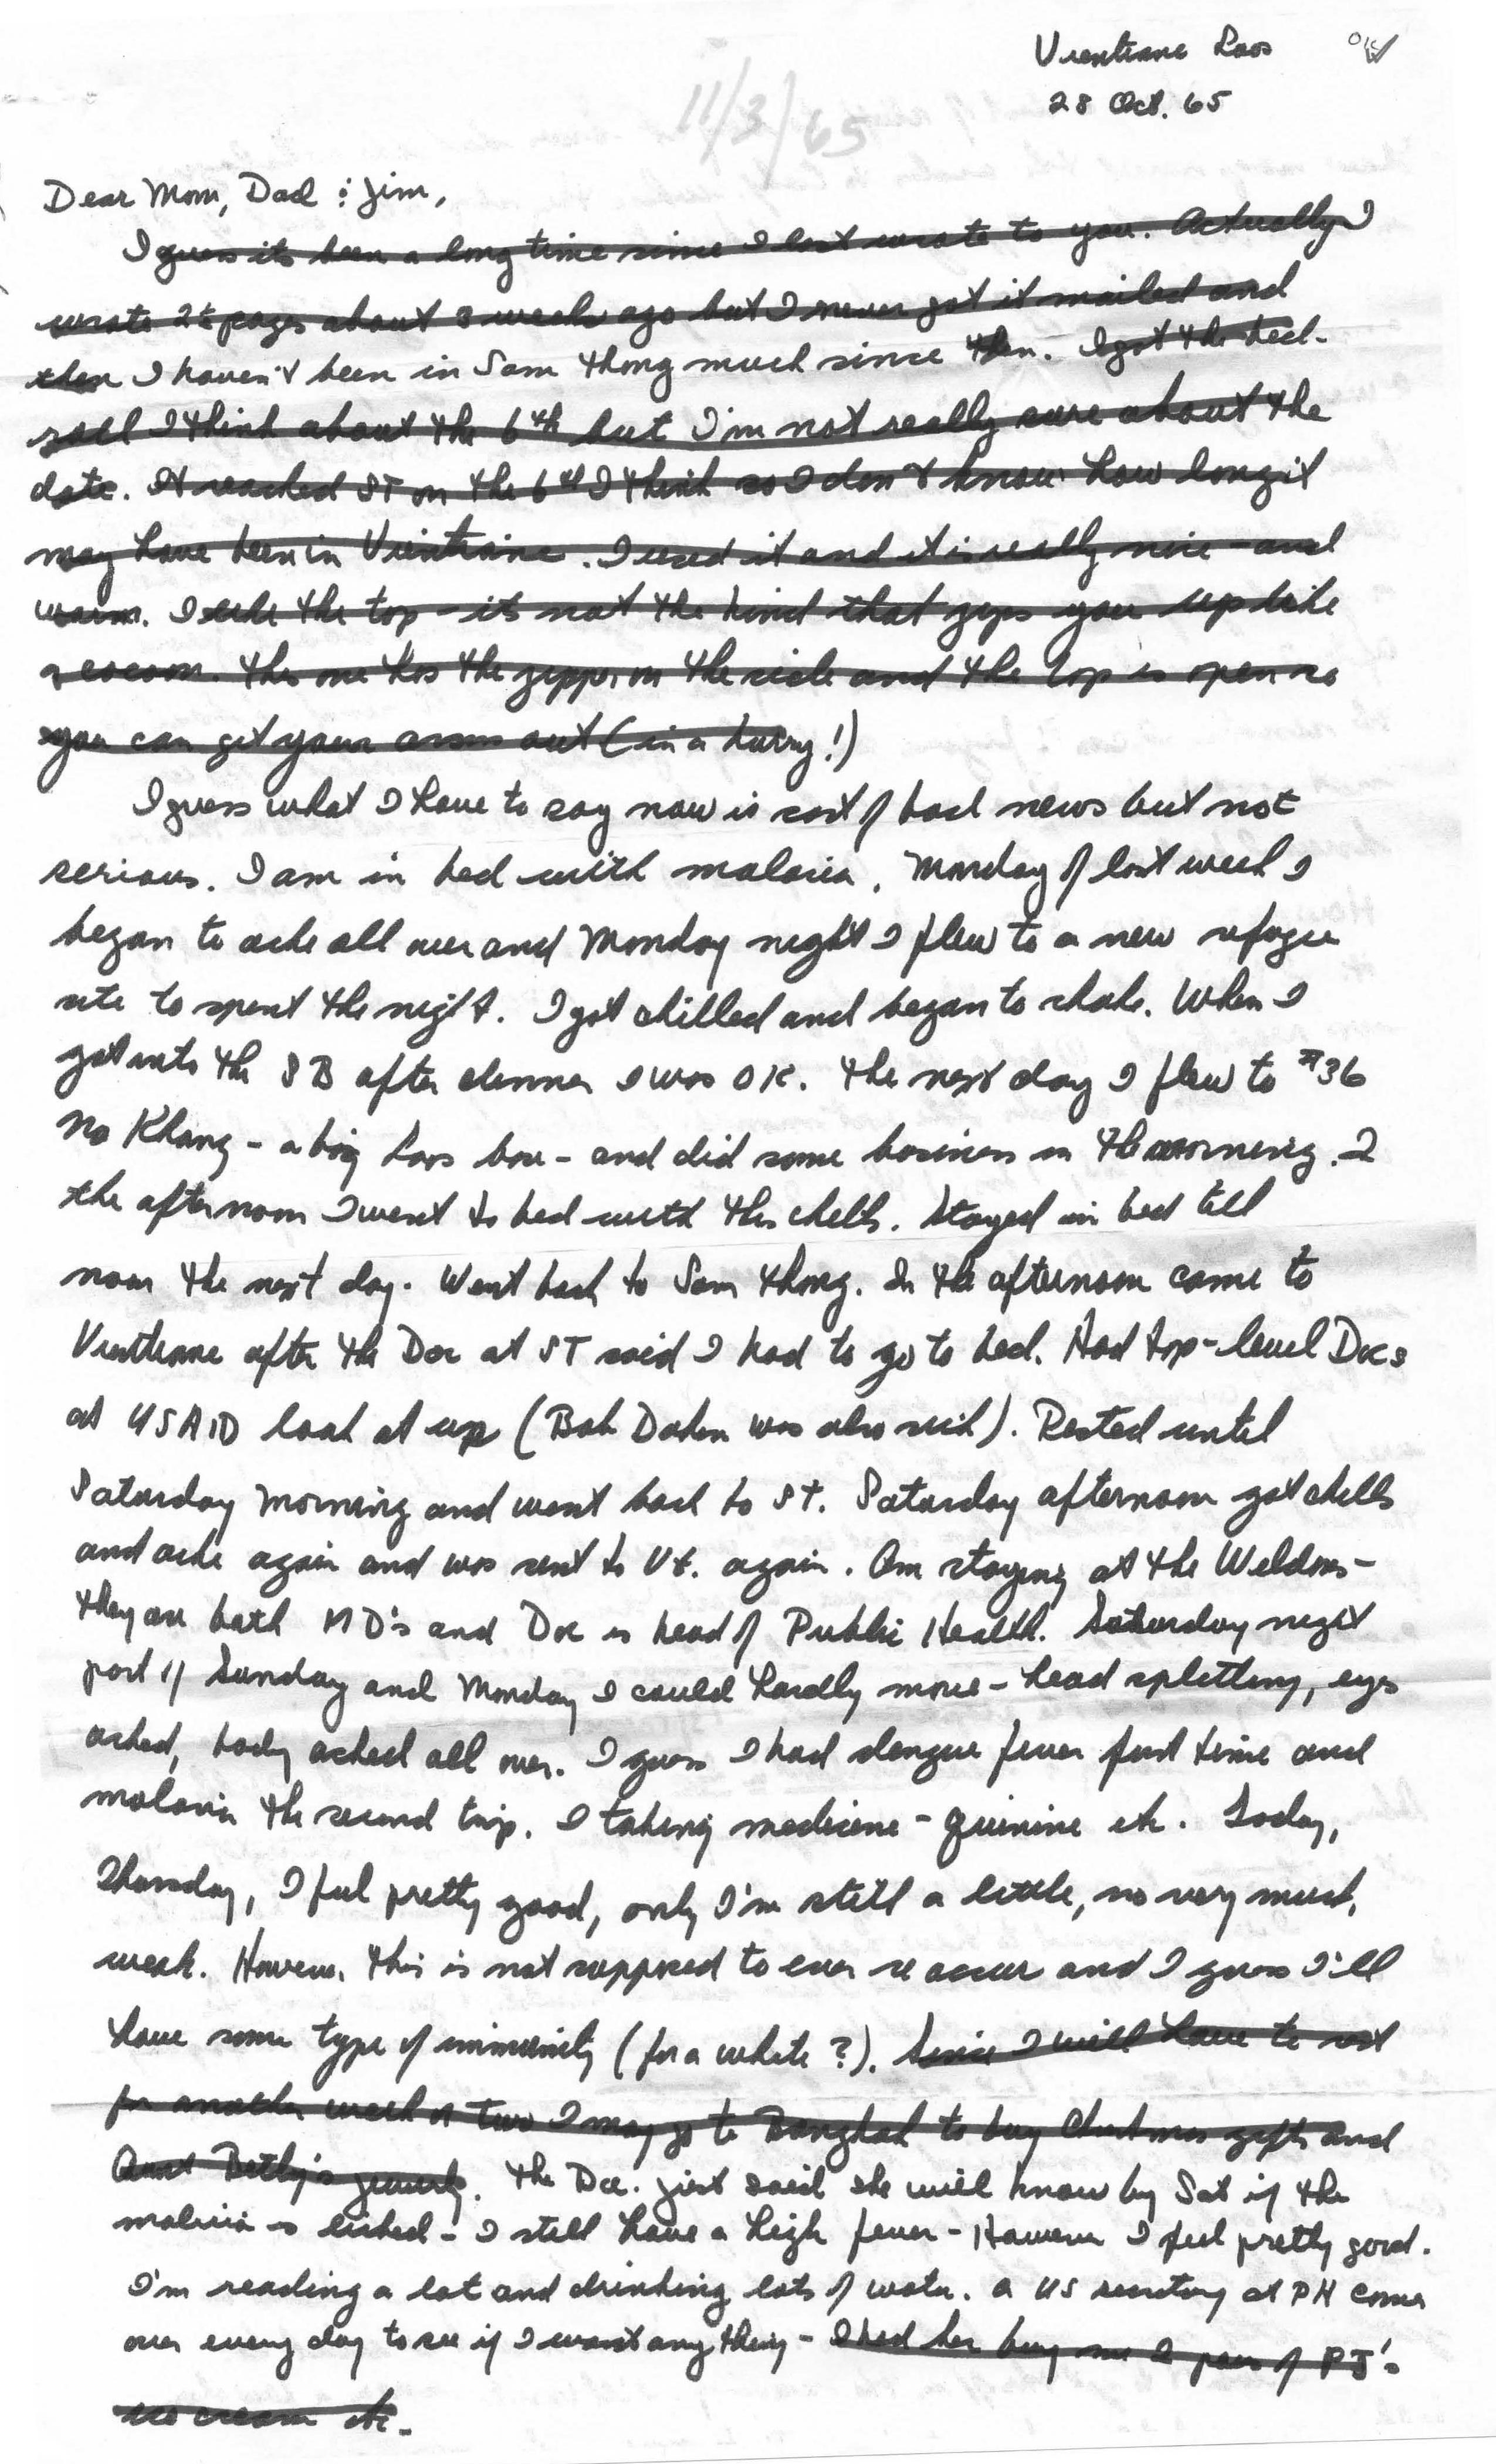 Vientiane Laos OK
28 Oct. 65
11/3/65
Dear Mom, Dad & Jim,
I guess its been a long time since I last wrote to you. Actually I
wrote 2½ pages about 3 weeks ago but I never got it mailed and
then I haven't been in Sam Thong much since then. I got the bed-
roll I think about the 6th but I'm not really sure about the
date. It reached ST on the 6th I think so I don't know how long it
may have been in Vientiane. I used it and it is really nice - and
warm. I like the top - its not the kind that zips you up like
a cocoon. This one has the zipper on the side and the top is open so
you can get your arms out (in a hurry!)
I guess what I have to say now is sort of bad news but not
serious. I am in bed with malaria. Monday of last week I
began to ache all over and Monday night I flew to a new refugee
site to spent the night. I got chilled and began to shake. When I
got into the SB after dinner I was OK. The next day I flew to #36
Na Khang - a big Laos base - and did some business in the morning. I
the afternoon I went to bed with the chills. Stayed in bed till
noon the next day. Went back to Sam Thong. In the afternoon came to
Vientiane after the Doc at ST said I had to go to bed. Had top-level Docs
at USAID look at us (Bob Dakan was also sick). Rested until
Saturday morning and went back to ST. Saturday afternoon got chills
and ache again and was sent to Vt. again. Am staying at the Weldons -
they are both MD's and Doc is head of Public Health. Saturday night
part of Sunday and Monday I could hardly move - head splitting, eyes
ached, body ached all over. I guess I had dengue fever first time and
malaria the second trip. I taking medicine - quinine etc. Today,
Thursday, I feel pretty good, only I'm still a little, no very much,
weak. However this is not supposed to ever reoccur and I guess I'll
have some type of immunity (for a while?). Since I will have to rest
for another week or two I may go to Bangkok to buy Christmas gifts and
Aunt Betty's jewelry. The Doc. just said she will know by Sat if the
malaria is licked - I still have a high fever - However I feel pretty good.
I'm reading a lot and drinking lots of water. A US secretary at PH comes
over every day to see if I want anything - I had her buy me 2 pair of PJ's
ice cream etc.